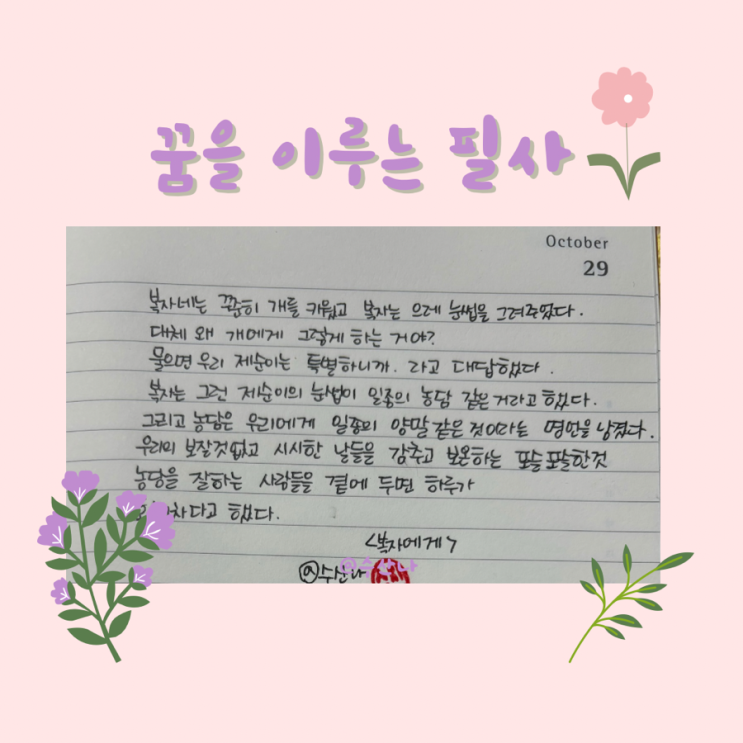 꿈을 이루는 필사
October
29
복자네는 꾸준히 개를 키웠고 복자는 으레 눈썹을 그려주었다.
대체 왜 개에게 그렇게 하는 거야?
물으면 우리 제순이는 특별하니까. 라고 대답했다.
복자는 그런 제순이의 눈썹이 일종의 농담 같은거라고 했다.
그리고 농담은 우리에게 일종의 양말같은 것이라는 명언을 남겼다.
우리의 보잘것없고 시시한 날들을 감추고 보온하는 포슬포슬한것
농담을 잘하는 사람들을 곁에 두면 하루가
차다고 했다.
<복자에게>
@수산나